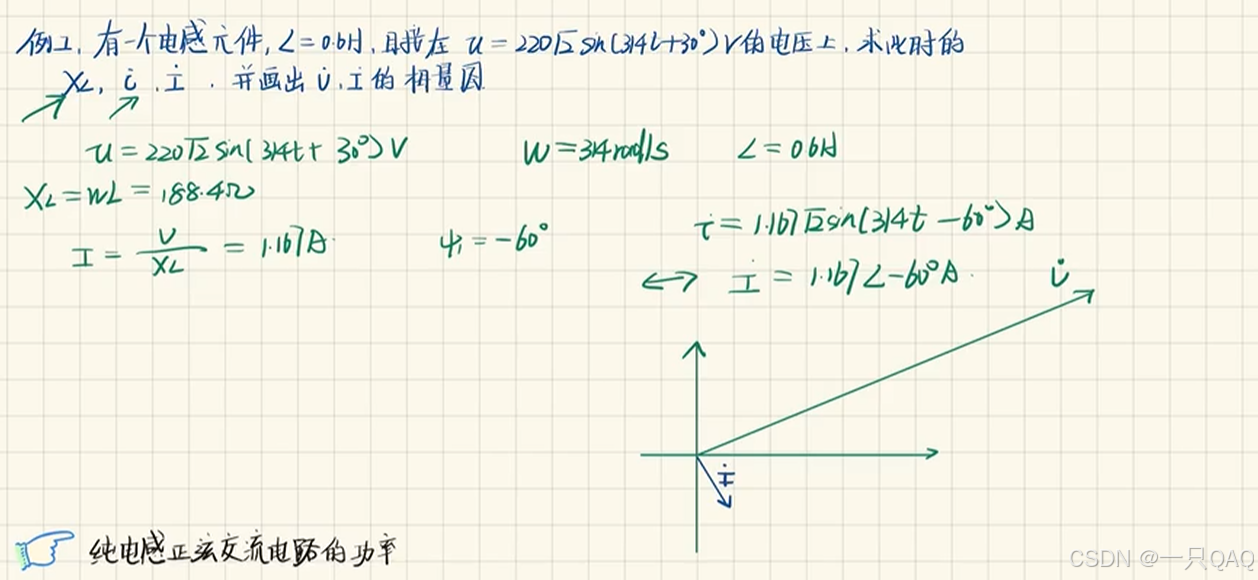 例1. 有一个电感元件, L=0.6H, 且接在 u=220√2 sin(314t+30°)V的电压上. 求此时的
XL, i, İ. 并画出 U̇, İ 的相量图
u=220√2 sin(314t+30°)V W=314rad/s L=0.6H
XL=WL=188.4Ω
I=U/XL=1.167A ψi=-60° i=1.167√2sin(314t-60°)A
↔ İ=1.167∠-60°A.
U̇
İ
纯电感正弦交流电路的功率
CSDN @一只QAQ